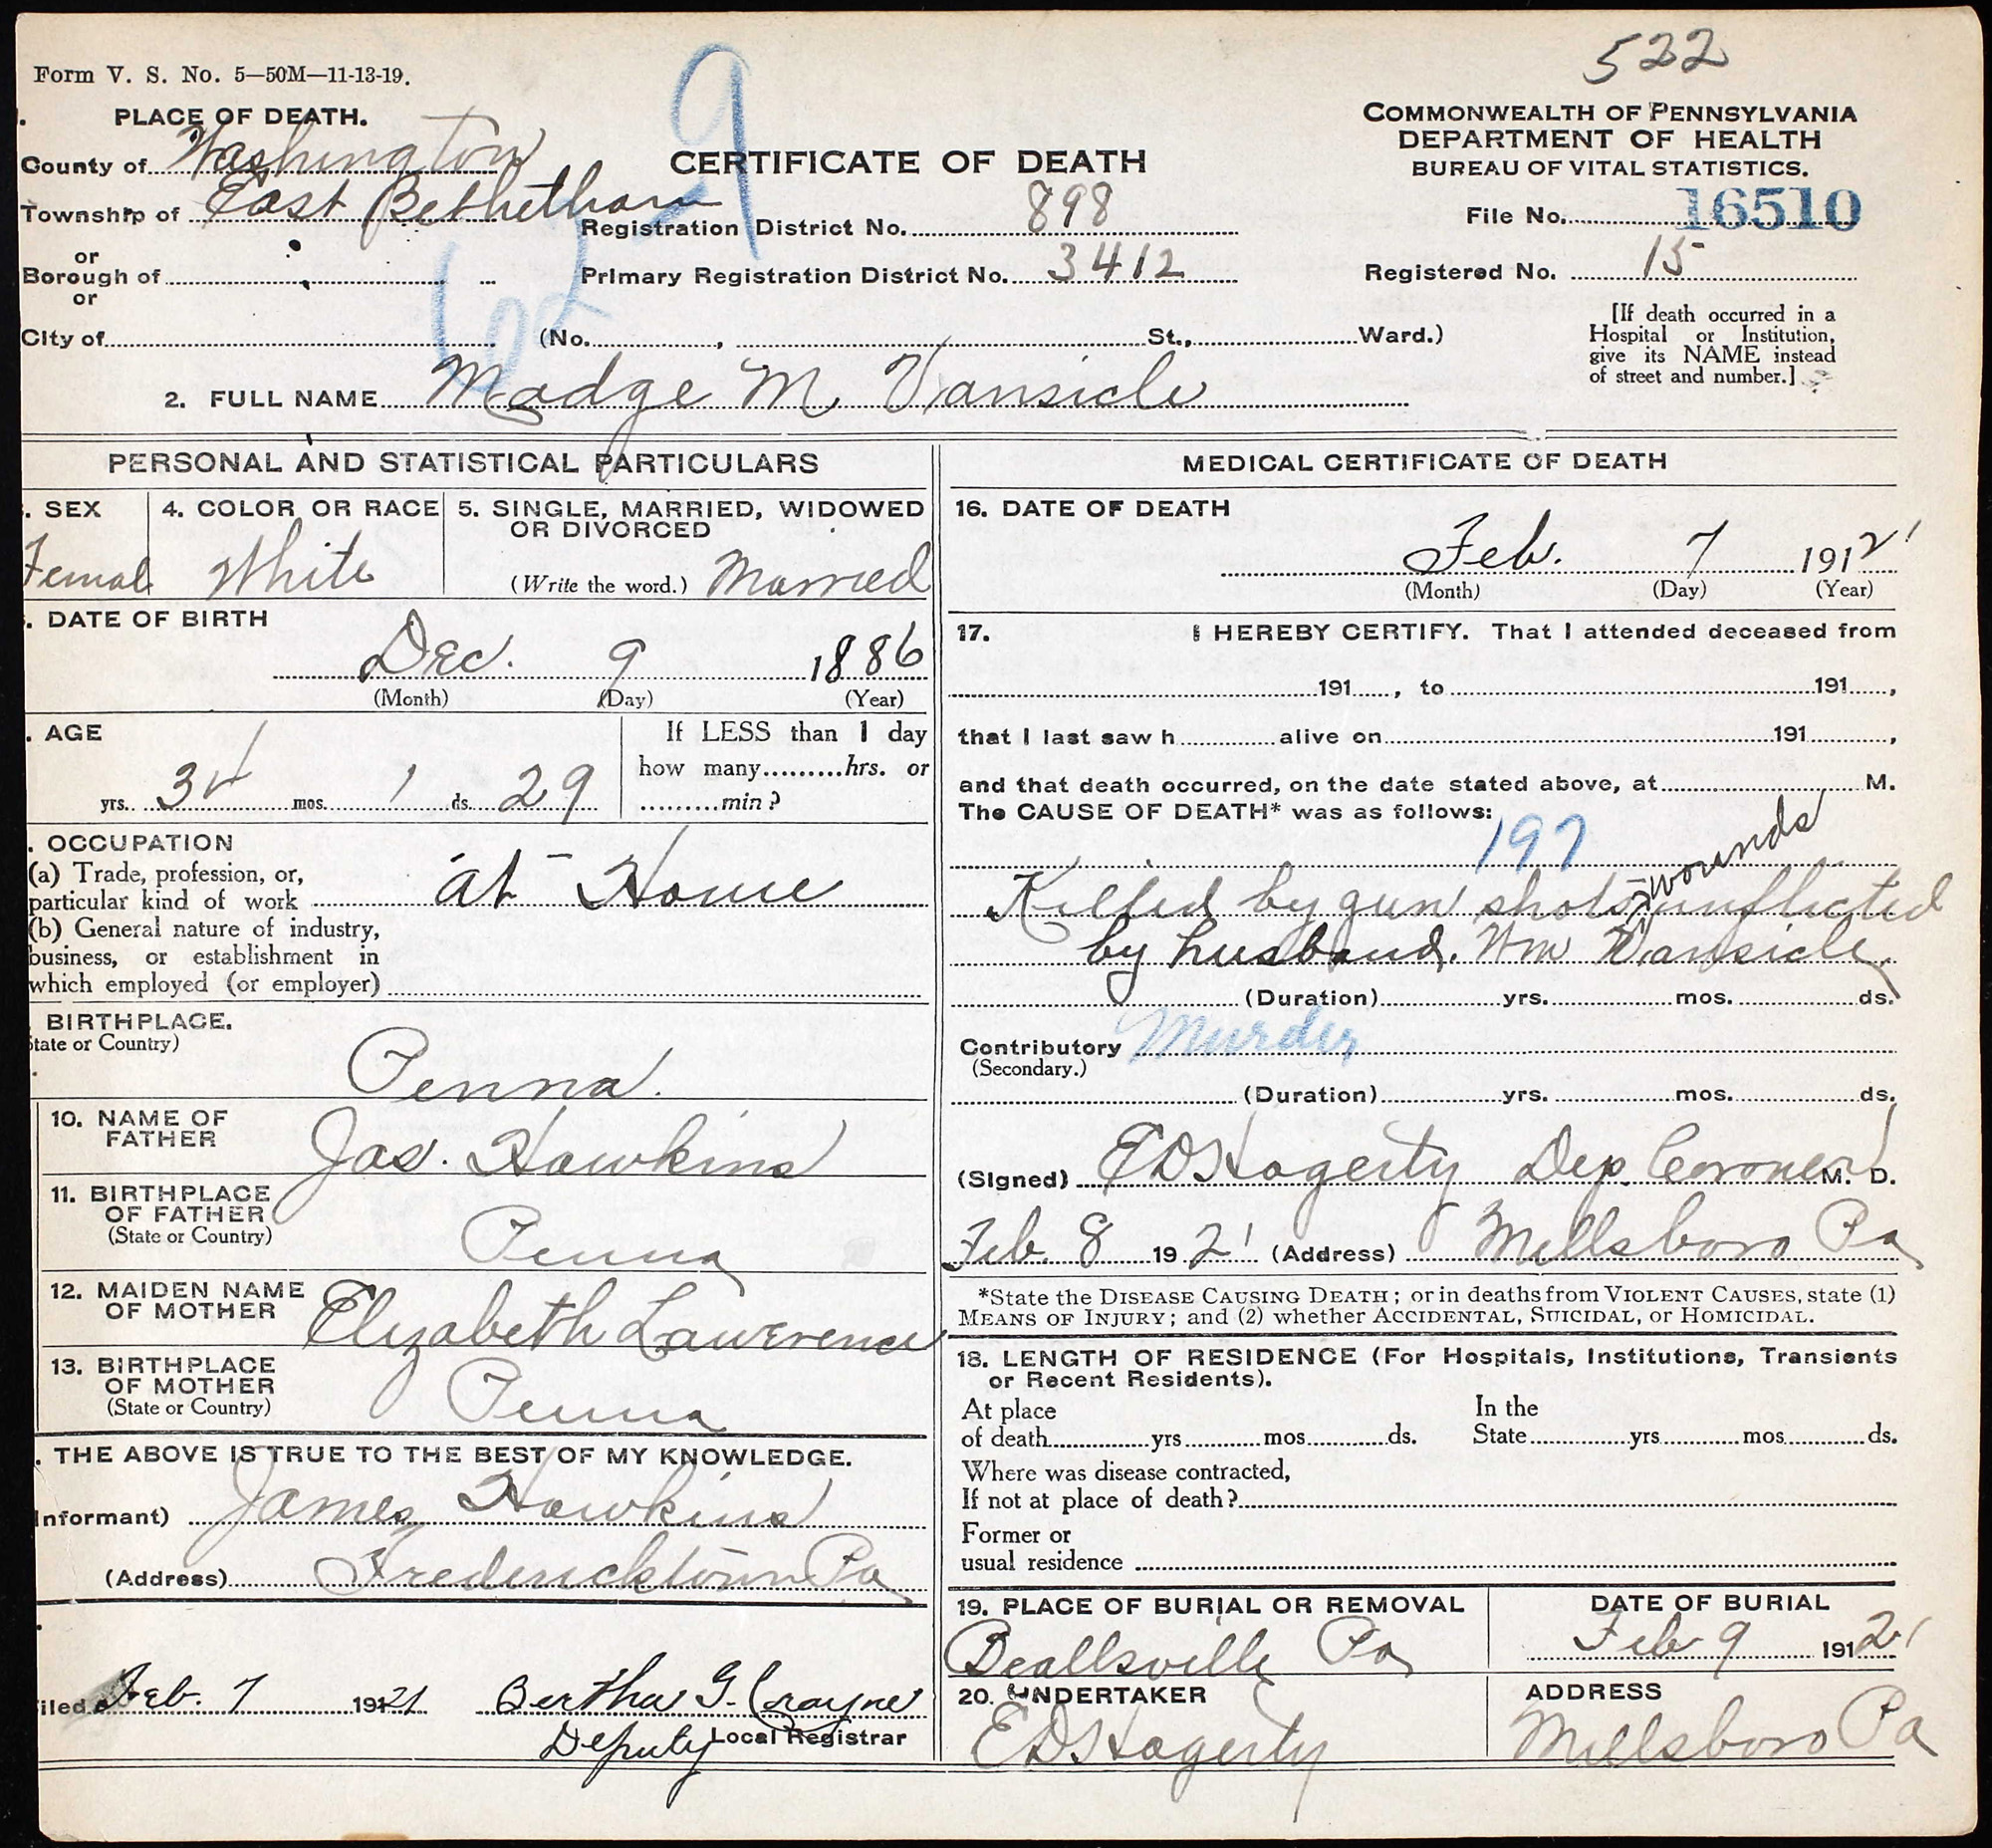 522
Form V. S. No. 5—50M—11-13-19.
COMMONWEALTH OF PENNSYLVANIA
DEPARTMENT OF HEALTH
BUREAU OF VITAL STATISTICS.
PLACE OF DEATH.
County of Washington
CERTIFICATE OF DEATH
Township of East Bethlehem
Registration District No. 898
File No. 16510
or
Borough of
Primary Registration District No. 3412
Registered No. 15
or
City of (No. , St., Ward.)
[If death occurred in a
Hospital or Institution,
give its NAME instead
of street and number.]
62 9
2. FULL NAME Madge M. Vansicle
PERSONAL AND STATISTICAL PARTICULARS
. SEX
Femal
4. COLOR OR RACE
White
5. SINGLE, MARRIED, WIDOWED
OR DIVORCED
(Write the word.) Married
. DATE OF BIRTH
Dec. 9 1886
(Month) (Day) (Year)
. AGE
34 yrs. 1 mos. 29 ds.
If LESS than 1 day
how many hrs. or
min?
. OCCUPATION
(a) Trade, profession, or,
particular kind of work at Home
(b) General nature of industry,
business, or establishment in
which employed (or employer)
BIRTHPLACE.
tate or Country)
Penna.
10. NAME OF
FATHER
Jas. Hawkins
11. BIRTHPLACE
OF FATHER
(State or Country)
Penna
12. MAIDEN NAME
OF MOTHER
Elizabeth Lawrence
13. BIRTHPLACE
OF MOTHER
(State or Country)
Penna
. THE ABOVE IS TRUE TO THE BEST OF MY KNOWLEDGE.
Informant) James Hawkins
(Address) Fredericktown Pa
iled Feb. 7 1921 Bertha G. Crayne
Deputy Local Registrar
MEDICAL CERTIFICATE OF DEATH
16. DATE OF DEATH
Feb. 7 1912 1
(Month) (Day) (Year)
17. I HEREBY CERTIFY. That I attended deceased from
191 , to 191 ,
that I last saw h alive on 191 ,
and that death occurred, on the date stated above, at M.
The CAUSE OF DEATH* was as follows:
197
wounds
Killed by gun shots inflicted
by husband. Wm Vansicle.
(Duration) yrs. mos. ds.
Contributory Murder
(Secondary.)
(Duration) yrs. mos. ds.
(Signed) E D Hagerty Dep. Coroner M. D.
Feb. 8 1921 (Address) Millsboro Pa
*State the DISEASE CAUSING DEATH; or in deaths from VIOLENT CAUSES, state (1)
MEANS OF INJURY; and (2) whether ACCIDENTAL, SUICIDAL, or HOMICIDAL.
18. LENGTH OF RESIDENCE (For Hospitals, Institutions, Transients
or Recent Residents).
At place
of death yrs mos ds.
In the
State yrs mos ds.
Where was disease contracted,
If not at place of death?
Former or
usual residence
19. PLACE OF BURIAL OR REMOVAL
Beallsville Pa
DATE OF BURIAL
Feb 9 1912 1
20. UNDERTAKER
E D Hagerty
ADDRESS
Millsboro Pa